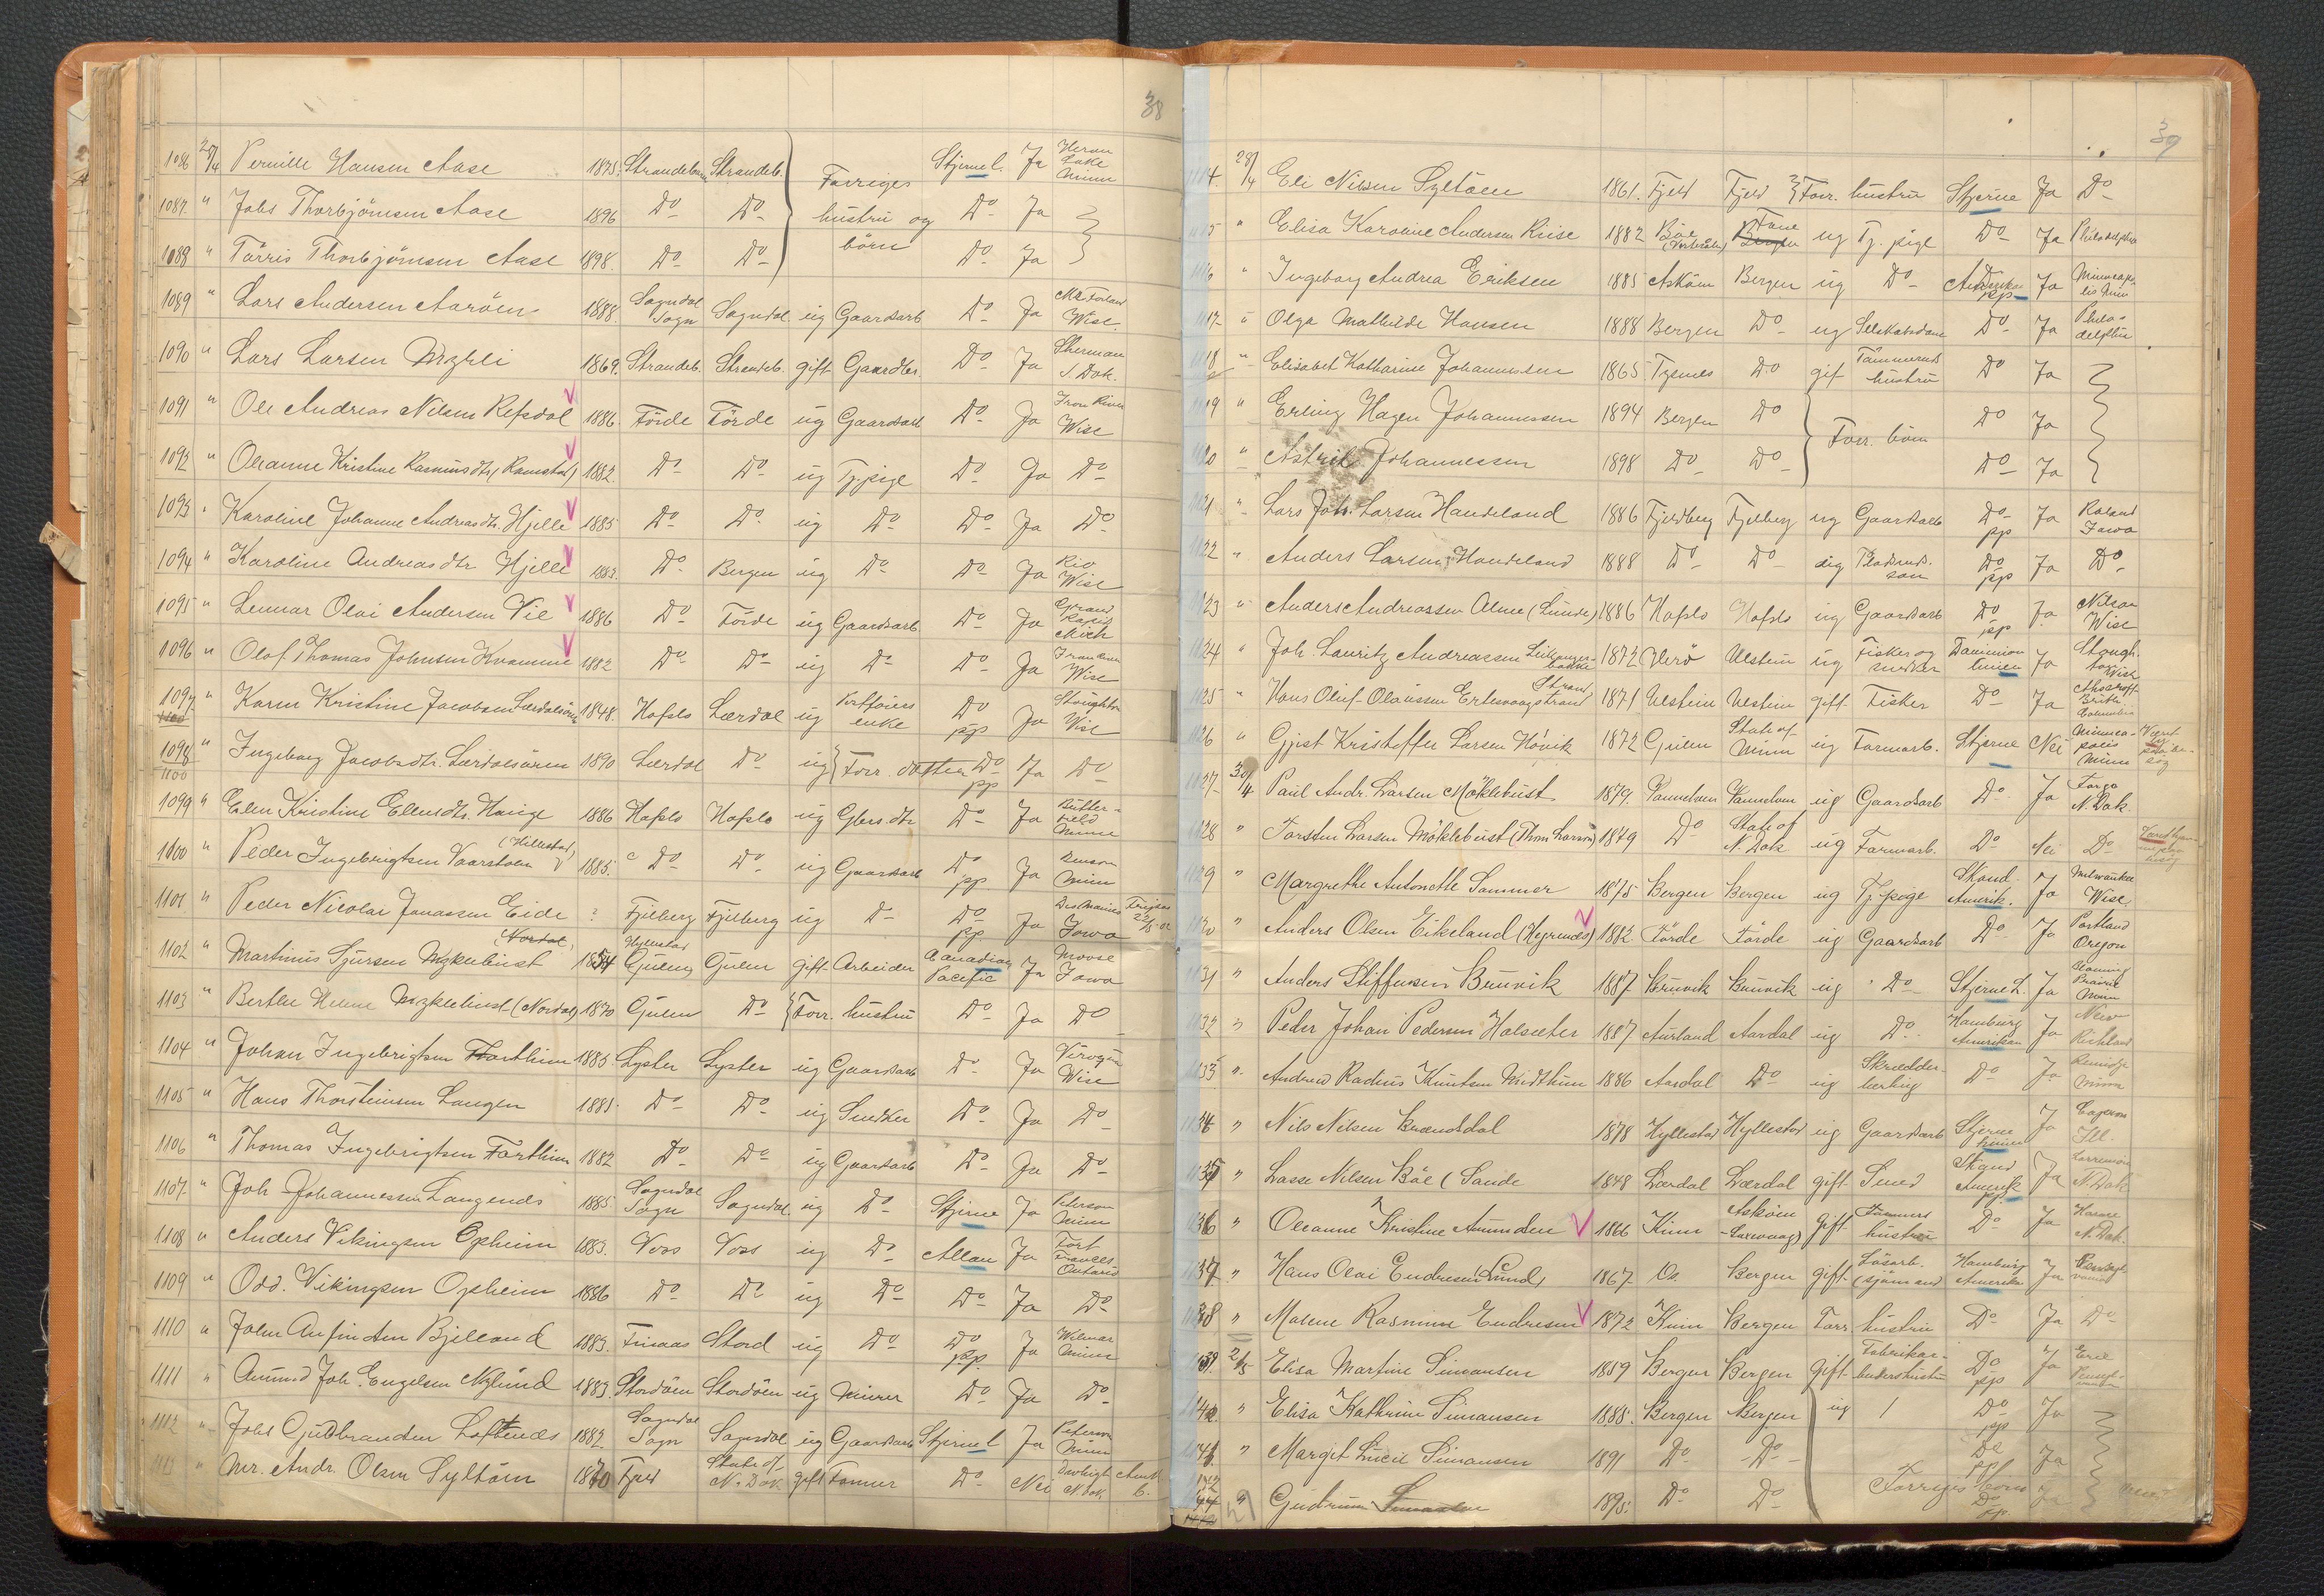 38
1086 28/4 Pernille Hansen Aase 1875 Strandebarm Strandeb. Forriges Stjernel. Ja Heron Lake Minn
1087 " Johs Thorbjörnsen Aase 1896 Do Do hustru og Do Ja
1089 " Törris Thorbjörnsen Aase 1898. Do Do börn Do Ja
1089 " Lars Andersen Aaröen 1888. Sogndal Sogn Sogndal ug Gaardsarb Do Ja Wisc.
1090 " Lars Larsen 1869. Strandeb. Strandeb. gift Gaardbr. Do Ja Sherman S Dak.
1091 " Ole Andreas Nilsen Refsdal 1886. Förde Förde ug Gaardsarb Do Ja Iron River Wisc
1092 " Oleanne Kristine Rasmusdtr (Ramstad) 1882. Do Do ug Tj.pige Do Ja Do
1093 " Karoline Johanne Andreasdtr. Hjelle 1885 Do Do ug Do Do Ja Do
1094 " Karoline Andreasdtr Hjelle 1883. Do Bergen ug Do Do Ja Rio Wisc
1095 " Lennar Olai Andersen Vie 1886 Do Förde ug Gaardsarb Do Ja Grand Rapid Mich
1096 " Olof Thomas Johnsen Kvamme 1882 Do Do ug Do Do Ja Iron River Wisc
1097 " Karen Kristine Jacobsen Lærdalsören 1848. Hafslo Lærdal ug enke Do pp Ja Stoughton Wisc
1098 " Ingeborg Jacobsdtr. Lærdalsören 1890 Lærdal Do ug Forr. datter Do pp Ja Do
1100
1099 " Elen Kristine Ellensdtr. Hauge 1886 Hafslo Hafslo ug Gbrs.dtr Do Ja Butterfield Minn
1100 " Peder Ingebrigtsen Vaarstøen (Hillestad) 1885. Do Do ug Gaardsarb Do pp. Ja Benson Minn
1101 " Peder Nicolai Jonassen Eide ? Fjelberg Fjelberg ug D- Do pp. Ja Des Moines Iowa
1102 " Martinus Sjursen Myklebust (Nordal) 1854 Hyllestad Gulen Gulen gift Arbeider Canadian Pacific Ja Moose Iowa
1103 " Berthe Helene Myklebust (Nordal) 1870 Gulen Do Forr. hustru Do Ja Do
1104 " Johan Ingebrigtsen Farthun 1885 Lyster Lyster ug Gaardsarb Do Ja Viroqua Wisc
1105 " Hans Thorsteinsen Langen 1881 Do Do ug Snedker Do Ja Do
1106 " Thomas Ingebrigtsen Farthun 1882 Do Do ug Gaardsarb Do Ja Do
1107 " Joh Johannessen Langenes 1885 Sogndal Sogn Sogndal ug Do Stjerne Ja Peterson Minn
1108 " Anders Vikingsen Opheim 1883. Voss Voss ug Do Allan Ja Fort Frances Ontario
1109 " Odd. Vikingsen Opheim 1886 Do Do ug Do Do Ja Do
1110 " John Anfindsen Bjelland 1883. Finaas Stord ug Do Do pp. Ja Wilmar Minn
1111 " Amund Joh. Engelsen Nylund 1883. Stordöen Stordöen ug Murer Do Ja Do
1112 " Johs Gudbrandsen Loftenes 1882 Sogndal Sogn Sogndal ug Gaardsarb Stjernel Ja Peterson Minn
" Mr. Andr. Olsen Syltöen 1870 Fjeld State of N. Dak gift Farmer Do Nei N. Dak.
39
1114. 28/4 Eli Nilsen Syltöen 1861. Fjeld Fjeld Forr. hustru Stjerne Ja Do
1115 " Elisa Karoline Andersen Riise 1882 Böe Fane Bergen ug Tj. pige Do Ja Philadelphia
1116 " Ingeborg Andrea Eriksen 1885 Asköen Bergen ug Do pp Ja Minneapolis Minn
1117 " Olga Mathilde Hansen 1888 Bergen Do ug Selskabsdame Do Ja Philadelphia
1118 " Elisabet Katharine Johannessen 1865 Tysnes Do gif Tömmermds hustru Do Ja
1119 " Erling Hagen Johannessen 1894 Bergen Do Forr. börn Do Ja
1120 " Astrid Johannessen 1898 Do Do Do Ja
1121 " Lars Joh. Larsen Handeland 1886 Fjeldberg Fjelberg ug Gaardsarb Do pp Ja Roland Iowa
1122 " Anders Larsen Handeland 1888 Do Do ug Pladsmds. sön Do pp Ja Do
1123 " Anders Andreassen Alme (Lunde) 1886 Hafslo Hafslo ug Gaardsarb Do pp Ja Nilson Wisc
1124 " Joh. Lauritz Andreassen 1872 Herö Ulstein ug Fisker og snedker Dominion linien Ja Stoughton Wisc
1125 " Hans Oluf Olaussen Ertesvaagstrand Strand 1871 Ulstein Ulstein gift Fisker Do Ja Ashcroft British Columbia
1126 " Gjest Kristoffer Larsen Hövik 1872 Gulen State of Minn ug Farmarb. Stjerne Nei Minneapolis Minn
1127 30/4 Paul Andr. Larsen Möklebust 1879. Vannelven Vannelven ug Gaardsarb Do Ja Fargo N. Dak.
1128 " Torsten Larsen Möklebust (Thom Larson) 1879 Do State of N. Dak ug Farmarb. Do Nei Do
1129 " Margrethe Antonette Sammer 1875 Bergen Bergen ug Tj.pige Skand. Amerik. Ja Milwaukee Wisc.
1130 " Anders Olsen Eikeland 1882. Förde Förde ug Gaardsarb Do Ja Portland Oregon
1131 " Anders Steffensen Bruvik 1887 Bruvik Bruvik ug Do Stjerne L. Ja Blooming Prairie Minn
1132 " Peder Johan Pedersen Halsæter 1887 Aurland Aardal ug Do Hamburg Amerikan Ja New Richland
1133 " Andrew Radius Knutsen Midthun 1886 Aardal Do ug Skrædderlærling Do Ja Bemidji Minn
1134 " Nils Nilsen Brændsdal 1878 Hyllestad Hyllestad ug Gaardsarb Stjerne linien Ja Ill.
1135 " Lasse Nilsen Böe (Sande 1848 Lærdal Lærdal gift Smed Skand Amerik pp. Ja N. Dak
1136 " Oleanne Kristine Amundsen 1866 Kinn Asköen gift hustru Do Ja N. Dak.
1137 " Hans Olai Endresen (Lund) 1867 Os. Bergen gift Lösarb. (sjömand Hamburg Amerika Ja
1138 " Malene Rasmine Endresen 1872 Kinn Bergen Forr. hustru Do Ja Do
1139 2/5 Elisa Martine Simonsen 1859 Bergen Bergen gift Do pp Ja Erie
1140 " Elisa Kathrine Simonsen 1888. Bergen Bergen ug Do pp Ja
1141 " Margit Lucie Simonsen 1891 Do Do Do pp Ja
1142 " Gudrun Simonsen 1895. Do Do Forriges börn Do pp. Ja